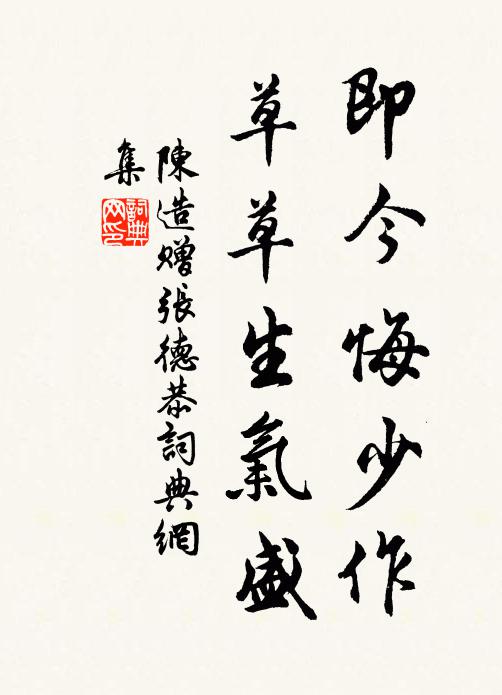 即今悔少作
草草生氣盛
陳造贈張德恭詞典網
集
詞典網印